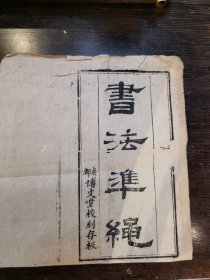 書法準繩
廣郡博文堂校刻存板